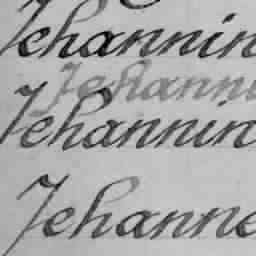 Jehannin
Jehanni
Jehannin
Jehanne